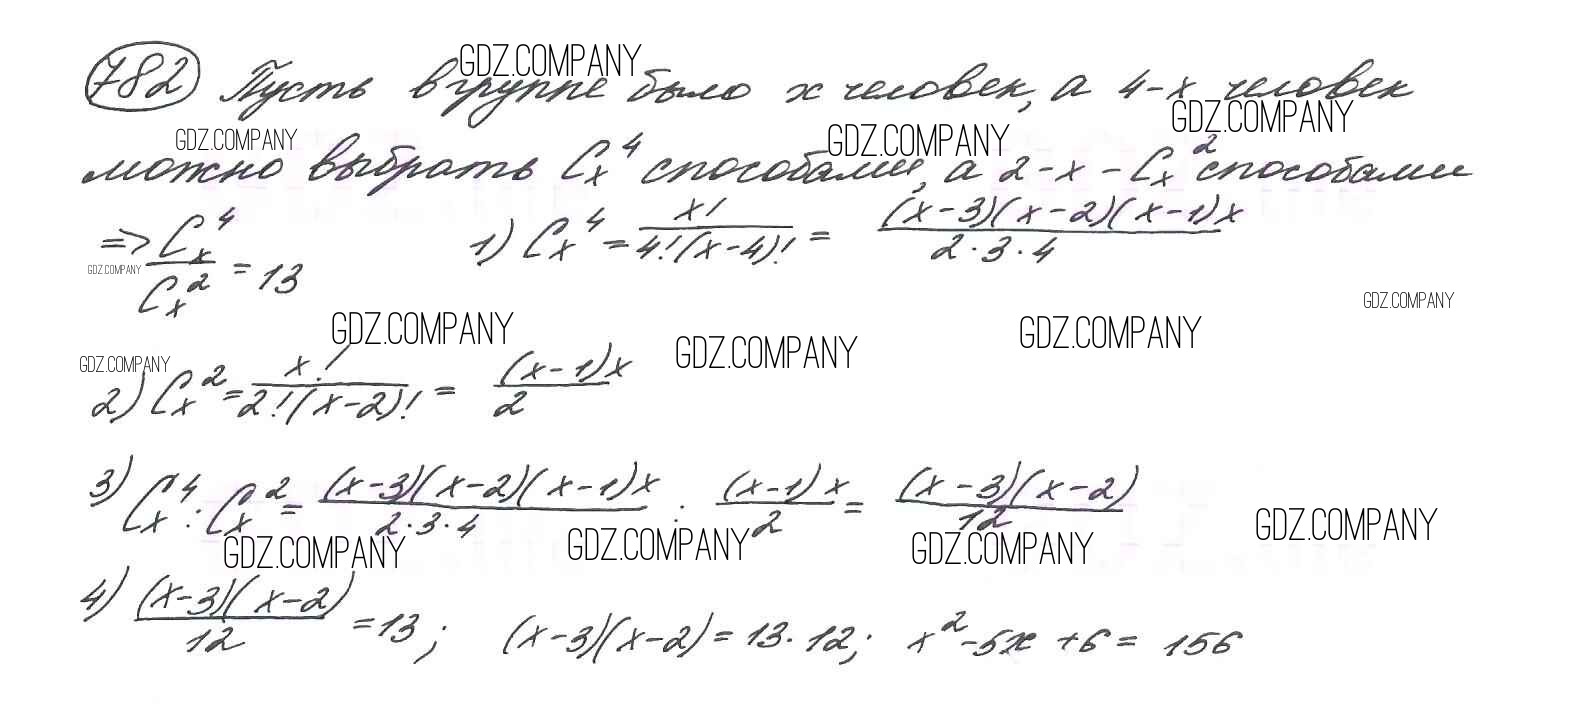 782 Пусть в группе было x человек, а 4-x человек
GDZ.COMPANY
GDZ.COMPANY GDZ.COMPANY GDZ.COMPANY
можно выбрать C_x^4 способами, а 2-x - C_x^2 способами
=> C_x^4 / C_x^2 = 13 1) C_x^4 = x! / 4!(x-4)! = (x-3)(x-2)(x-1)x / 2·3·4
GDZ.COMPANY GDZ.COMPANY
GDZ.COMPANY GDZ.COMPANY GDZ.COMPANY
GDZ.COMPANY
2) C_x^2 = x! / 2!(x-2)! = (x-1)x / 2
3) C_x^4 : C_x^2 = (x-3)(x-2)(x-1)x / 2·3·4 : (x-1)x / 2 = (x-3)(x-2) / 12
GDZ.COMPANY GDZ.COMPANY GDZ.COMPANY GDZ.COMPANY
4) (x-3)(x-2) / 12 = 13; (x-3)(x-2) = 13·12; x^2 -5x +6 = 156